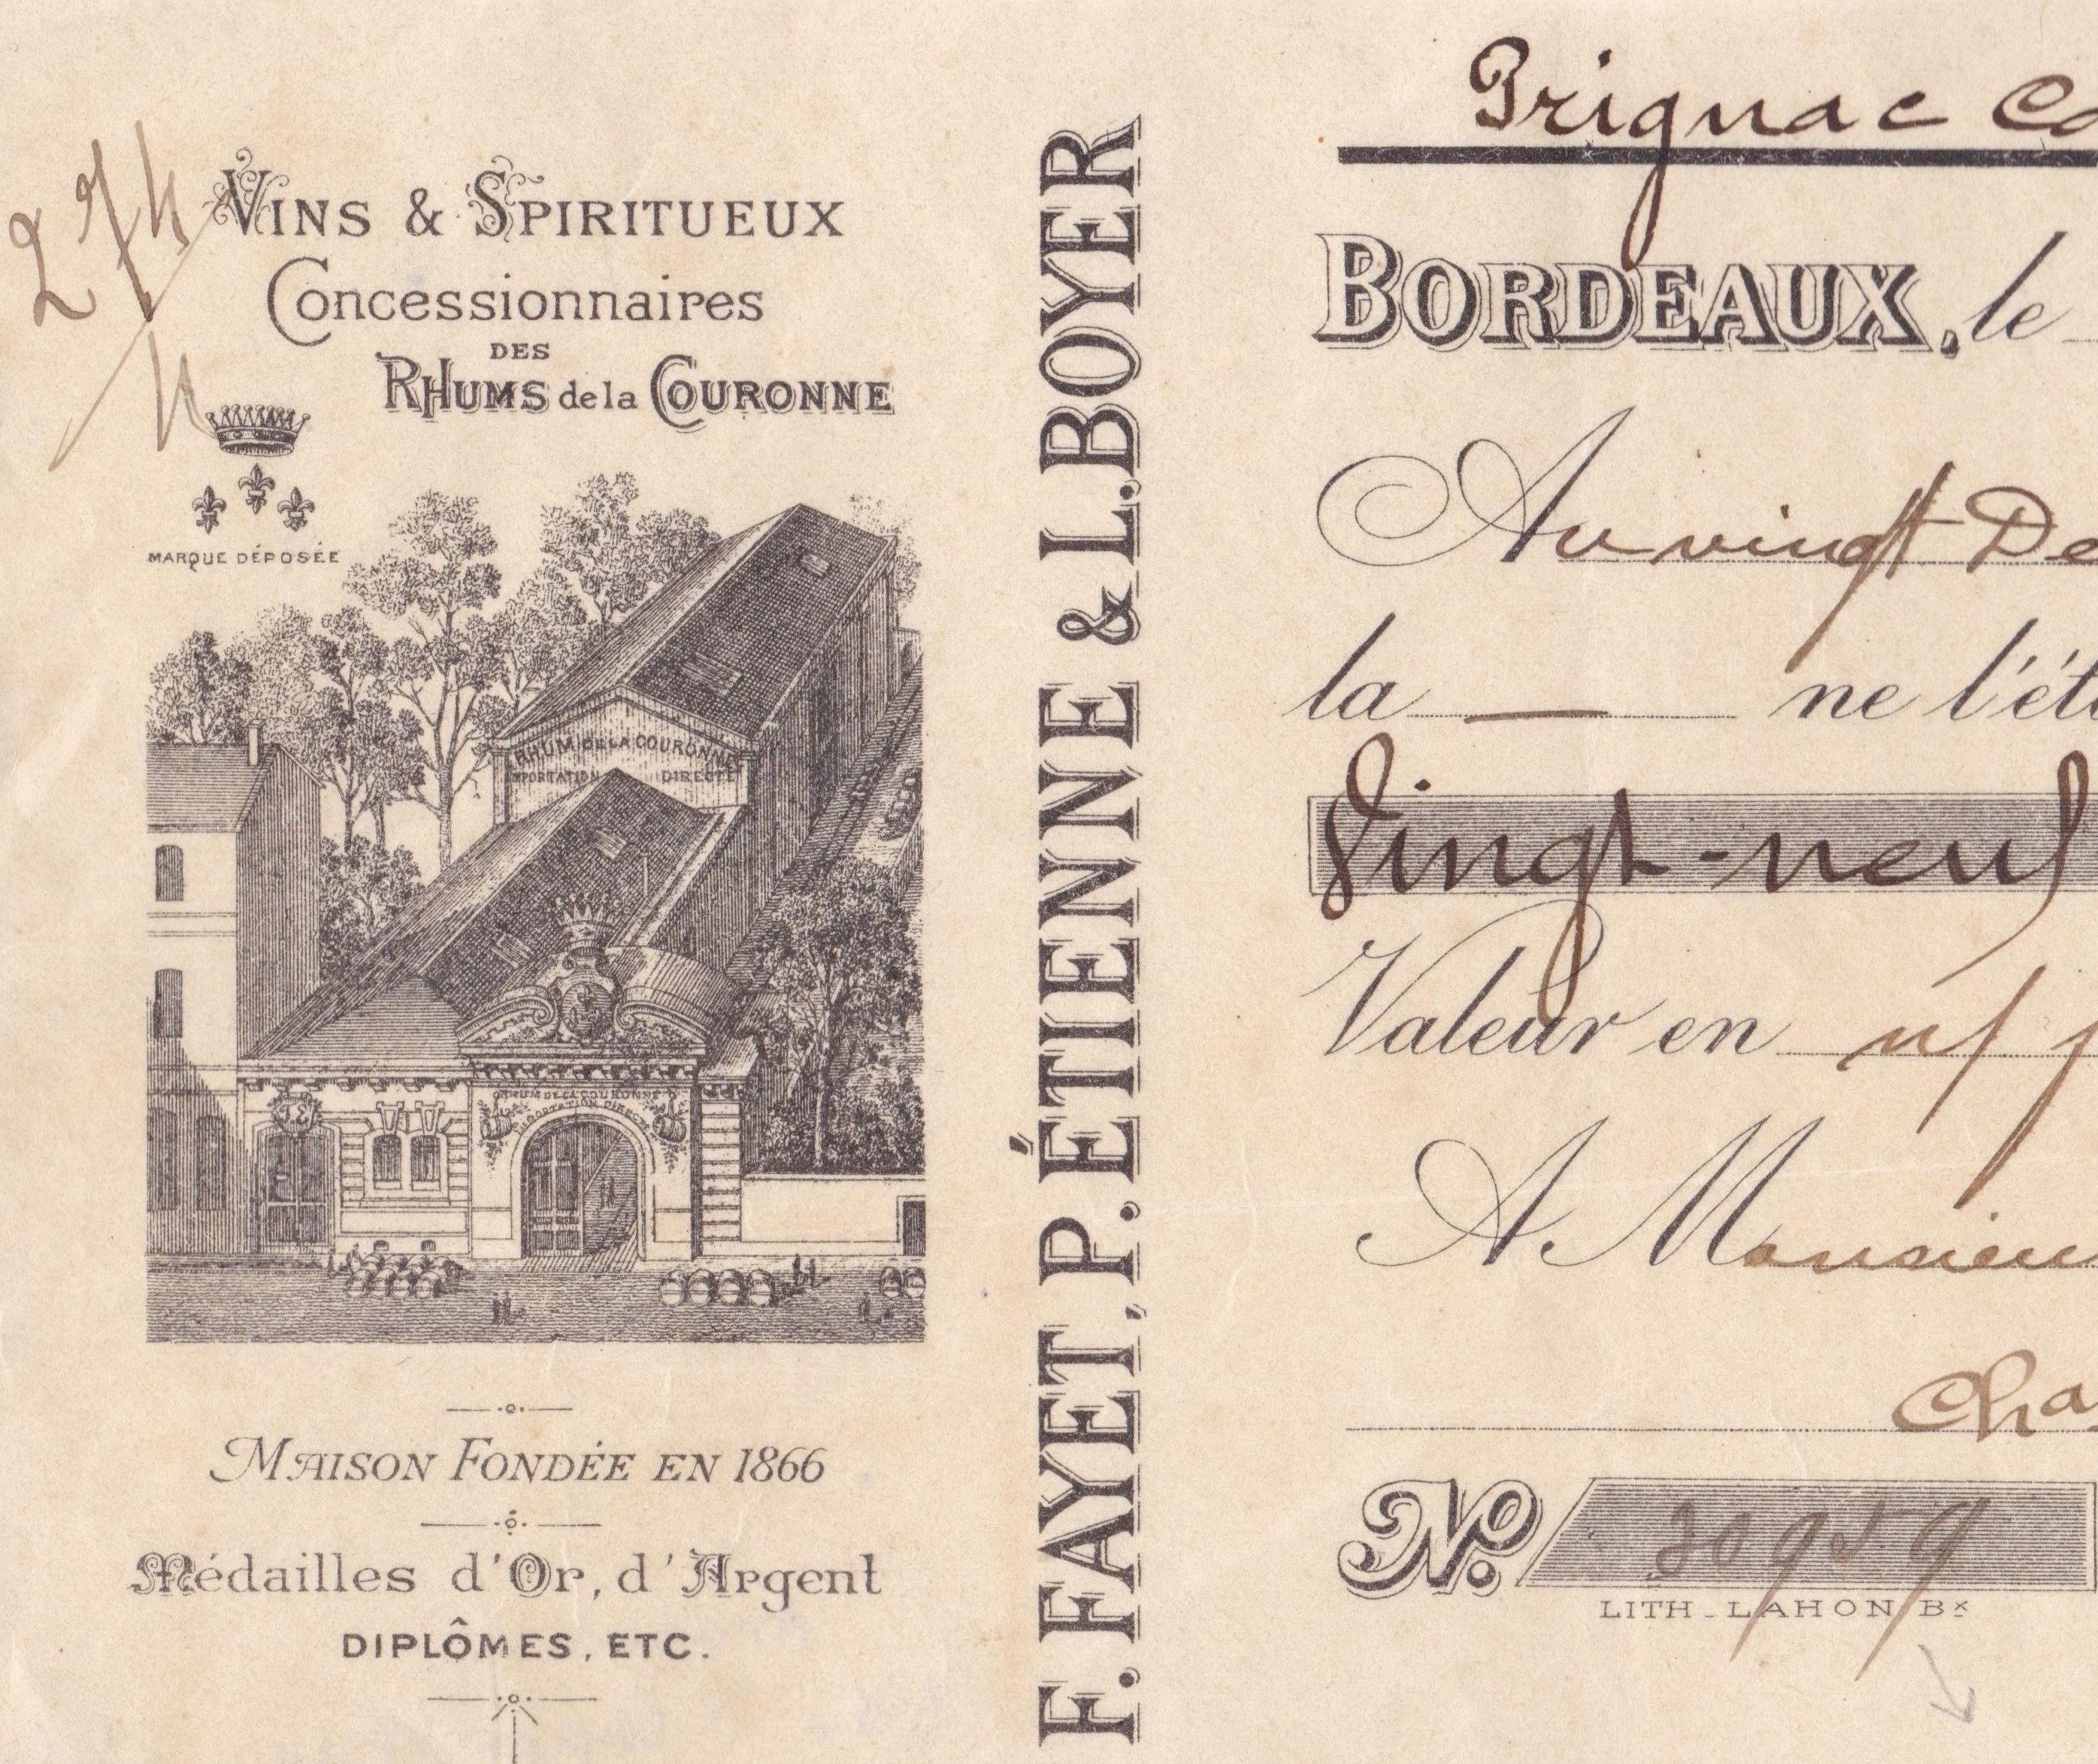 VINS & SPIRITUEUX
Concessionnaires
DES
RHUMS de la COURONNE
MARQUE DÉPOSÉE
RHUM DE LA COURONNE
IMPORTATION DIRECTE
RHUM DE LA COURONNE
IMPORTATION DIRECTE
MAISON FONDÉE EN 1866
Médailles d'Or, d'Argent
DIPLÔMES, ETC.
F. FAYET, P. ÉTIENNE & L. BOYER
Prignac
BORDEAUX, le
Au vingt De
la — ne l'ét
Vingt-neuf
Valeur en
A Monsieur
Cha
No. 30959
LITH. LAHON Bx